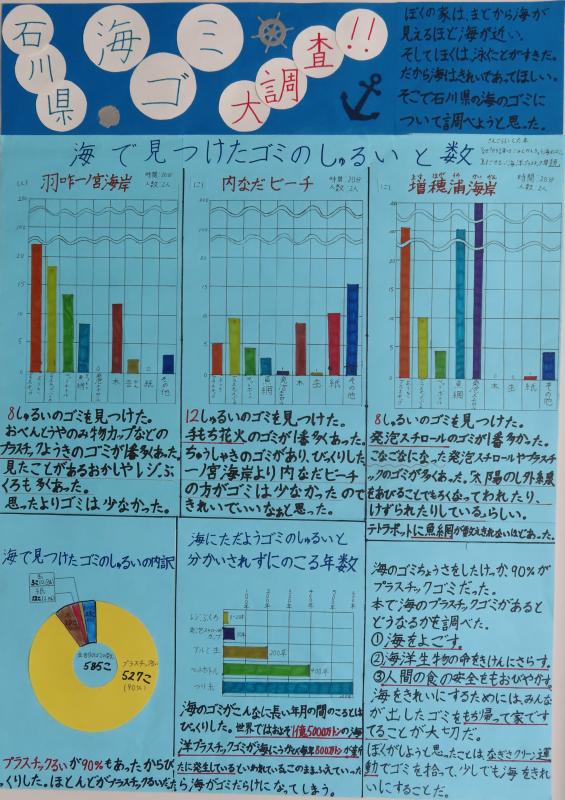 石川県
海ゴミ
大調査!!
ぼくの家は、まどから海が
見えるほど海が近い。
そしてぼくは、泳ぐことがすきだ。
だから海はきれいであってほしい。
そこで石川県の海のゴミに
ついて調べようと思った。
海で見つけたゴミのしゅるいと数
羽咋一ノ宮海岸
時間:20分
人数:2人
(こ)
木
紙
その他
8しゅるいのゴミを見つけた。
おべんとうやのみ物カップなどの
プラスチックようきのゴミが1番多くあった。
見たことがあるおかしやレジぶ
くろも多くあった。
思ったよりゴミは少なかった。
内なだビーチ
時間:20分
人数:2人
(こ)
魚網
木
缶
紙
その他
12しゅるいのゴミを見つけた。
手もち花火のゴミが1番多くあった。
ちゅうしゃきのゴミがあり、びっくりした
一ノ宮海岸より内なだビーチ
の方がゴミは少なかったので
きれいでいいなぁと思った。
増穂浦海岸
時間:20分
人数:2人
(こ)
魚網
木
缶
紙
その他
8しゅるいのゴミを見つけた。
発泡スチロールのゴミが1番多かった。
こなごなになった発泡スチロールやプラスチッ
クのゴミが多くあった。太陽のしがい線
をあびることでもろくなってわれたり、
けずられたりしているらしい。
テトラポットに魚網が数えきれないほどあった。
海で見つけたゴミのしゅるいの内訳
585こ
プラスチックるい
527こ
(90%)
プラスチックるいが90%もあったからび
っくりした。ほとんどがプラスチックるいだった
海にただようゴミのしゅるいと
分かいされずにのこる年数
レジぶくろ
発泡スチロールカップ
アルミ缶
200年
ペットボトル
400年
つり糸
海のゴミがこんなに長い年月の間のこるとは
びっくりした。世界ではおよそ1億5000万トンの海
洋プラスチックゴミが海にうかび毎年800万トンが新
たに発生しているといわれている。このままふえていった
ら海がゴミだらけになってしまう。
海のゴミちょうさをしたけっか、90%が
プラスチックゴミだった。
本で海のプラスチックゴミがあると
どうなるかを調べた。
①海をよごす。
②海洋生物の命をきけんにさらす。
③人間の食の安全をおびやかす。
海をきれいにするためには、みんな
が出したゴミをもち帰って家ですて
てることが大切だ。
ぼくがしようと思ったことは、なぎさクリーン運
動でゴミを拾って、少しでも海をきれ
いにすることだ。